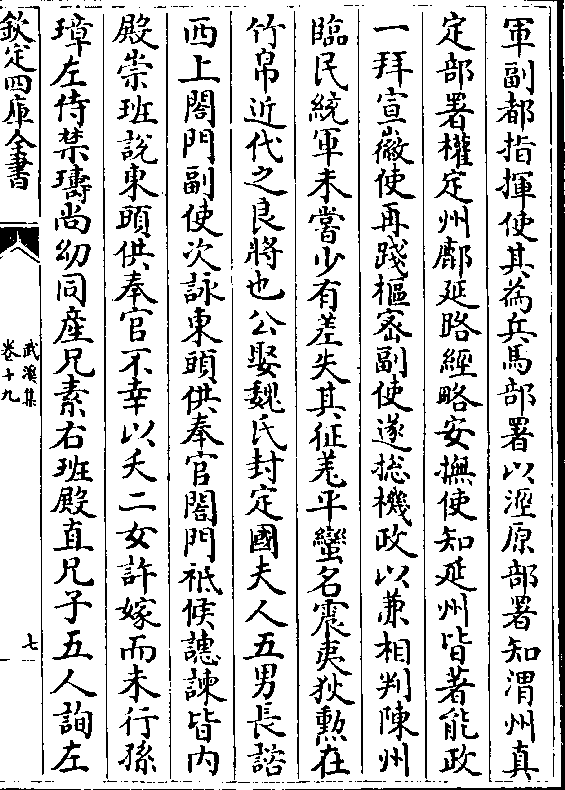 軍副都指揮使其為兵馬部署以涇原部署知渭州真
定部署權定州鄜延略經略安撫使知延州皆著能政
一拜宣徽使再踐樞密副使遂揔機政以兼相判陳州
臨民統軍未嘗少有差失其征羌平蠻名震夷狄勲在
竹帛近代之良將也公娶魏氏封定國夫人五男長諮
西上閤門副使次詠東頭供奉官閤門祗候譓諫皆内
殿崇班說東頭供奉官不幸以夭二女許嫁而未行孫
璋左侍禁璹尚幼同産兄素右班殿直兄子五人詢左
欽定四庫全書
武溪集
卷十九
七